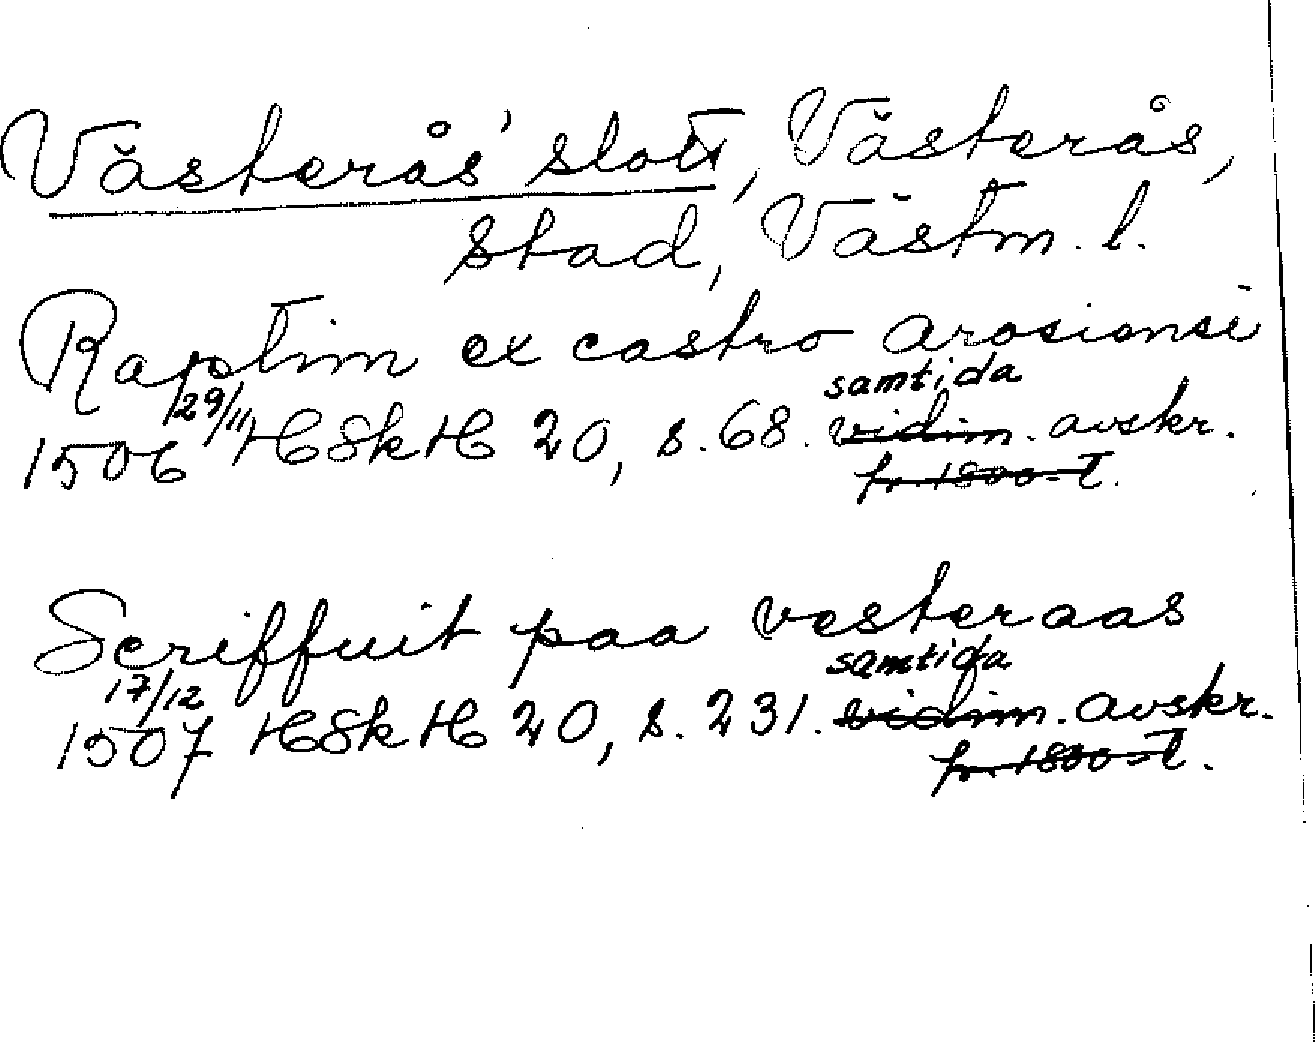 Västerås' slott, Västerås,
stad, Västm. l.
Raptim ex castro arosiensi
samtida
1506 29/11 HSkH 20, s. 68. vidim. avskr.
fr. 1800-t.
Scriffuit paa vesteraas
samtida
1507 17/12 HSkH 20, s. 231. vidim. avskr.
fr. 1800-t.